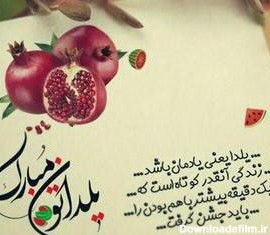 ... یلدا یعنی یادمان باشد ...
... زندگی آنقدر کوتاه است که ...
یک دقیقه بیشتر با هم بودن را ...
... باید جشن گرفت ...
یلداتون مبارک
Downloadefilm.ir